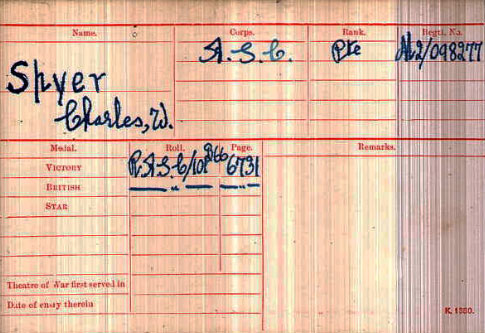 Name. Corps. Rank. Regtl. No.
Spyer A.S.C. Pte M2/098277
Charles, W.
Medal. Roll. Page. Remarks.
VICTORY R.A.S.C/101 B66 6731
BRITISH — „ — — „ —
STAR
Theatre of War first served in
Date of entry therein
K. 1380.